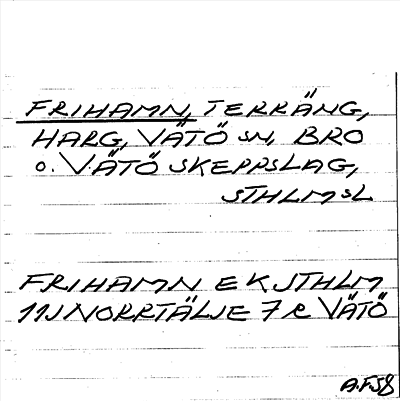 FRIHAMN, TERRÄNG,
HARG, VÄTÖ SN, BRO
o. VÄTÖ SKEPPSLAG,
STHLMSL
FRIHAMN EK STHLM
11J NORRTÄLJE 7 R VÄTÖ
A.F58